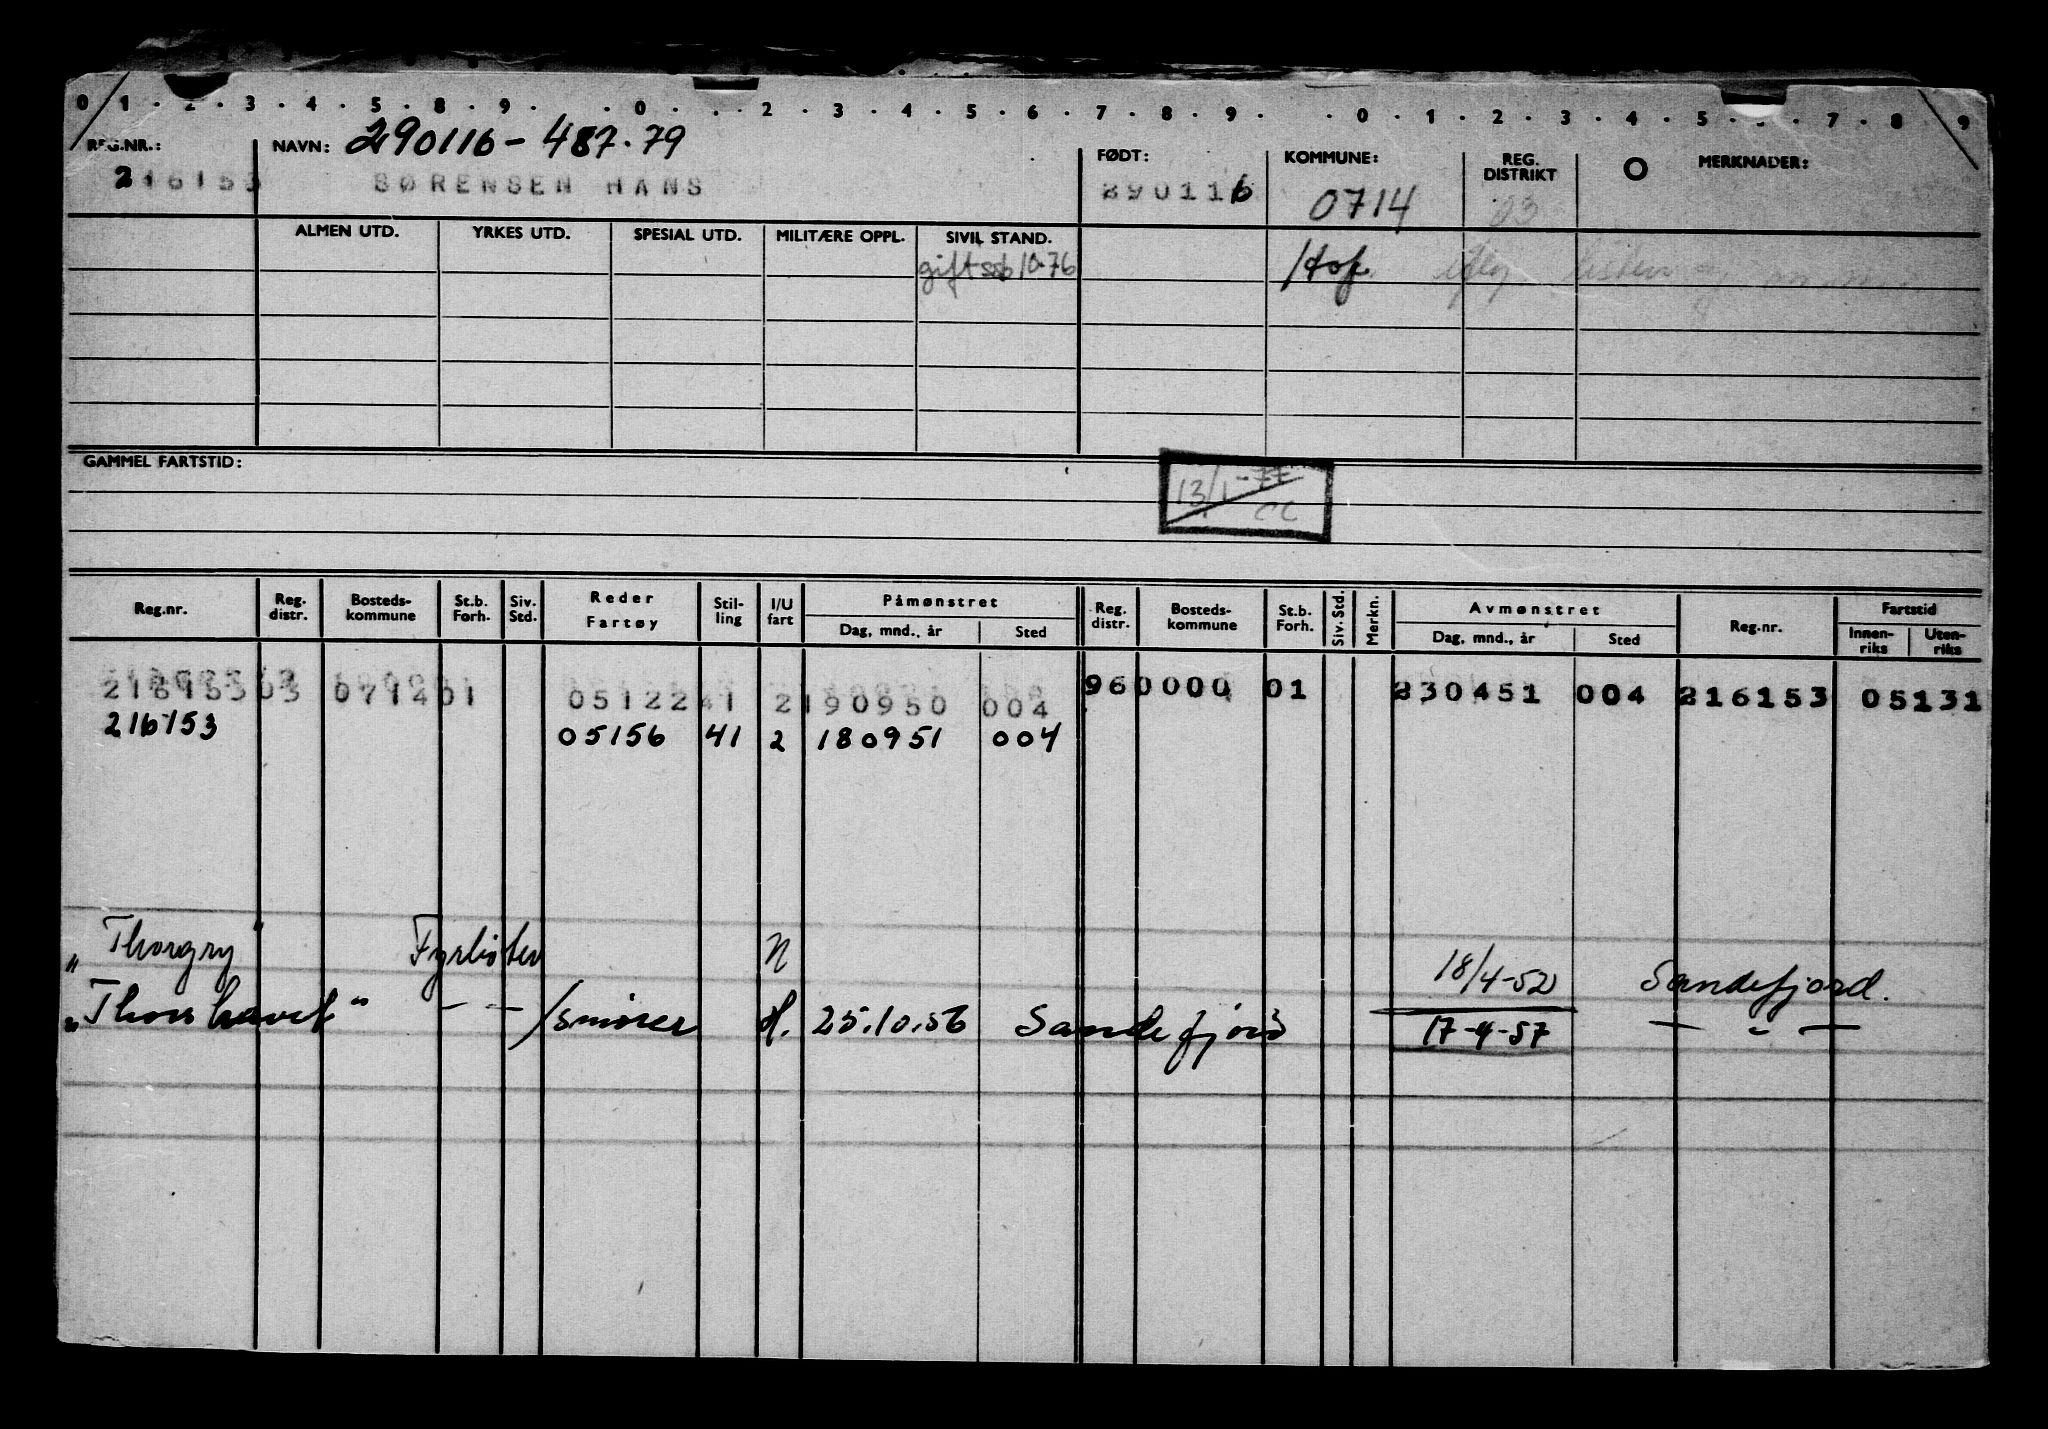 0 1 . 2 . 3 . 4 . 5 . 8 . 9 . . 0 . . . 2 . 3 . 4 . 5 . 6 . 7 . 8 . 9 . . 0 . 1 . 2 . 3 . 4 . 5 . . 7 . 8 9
REG.NR.: NAVN: 290116-487.79 FØDT: KOMMUNE: REG. DISTRIKT O MERKNADER:
216153 SØRENSEN HANS 290116 0714 03
ALMEN UTD. YRKES UTD. SPESIAL UTD. MILITÆRE OPPL. SIVIL STAND.
gift ssb 10-76 Hof.
GAMMEL FARTSTID:
13/1-77
CC
Reg.nr. Reg. distr. Bosteds-kommune St.b. Forh. Siv. Std. Reder Fartøy Stil-ling I/U fart Påmønstret Reg. distr. Bosteds-kommune St.b. Forh. Siv. Std. Merkn. Avmønstret Reg.nr. Fartstid
Dag, mnd., år Sted Dag, mnd., år Sted Innen-riks Uten-riks
216153 03 0714 01 05122 41 2 190950 004 96 0000 01 230451 004 216153 05131
216153 05156 41 2 180951 004
"Thorgry" Fyrbøter N 18/4-52 Sandefjord.
"Thorshavet" - " - /smører H. 25.10.56 Sandefjord 17-4-57 — " —